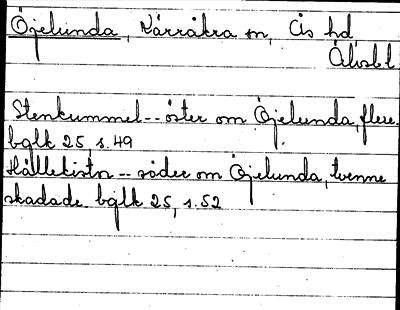 Öjelunda, Kärråkra sn, Ås hd
Älvsb l
Stenkummel -- öster om Öjelunda, flere.
bglk 25, s. 49
Hällekistn -- söder om Öjelunda, tvenne
skadade bglk 25, s. 52